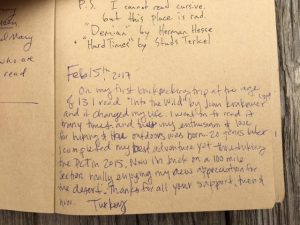 P.S. I cannot read cursive.
but this place is rad.
• "Demian" by Herman Hesse
• "Hard Times" by Studs Terkel
Mary
who are
read
Feb 15th 2017
On my first backpacking trip at the age
of 13 I read "Into the Wild" by Jon Krakauer
and it changed my life. I went on to read it
many times and my enthusiasm & love
for hiking & the outdoors was born. 20 years later
I completed my best adventure yet thru hiking
the PCT in 2015. Now I'm back on a 100 mile
section really enjoying my new appreciation for
the desert. Thanks for all your support, trend
here.
Turkey